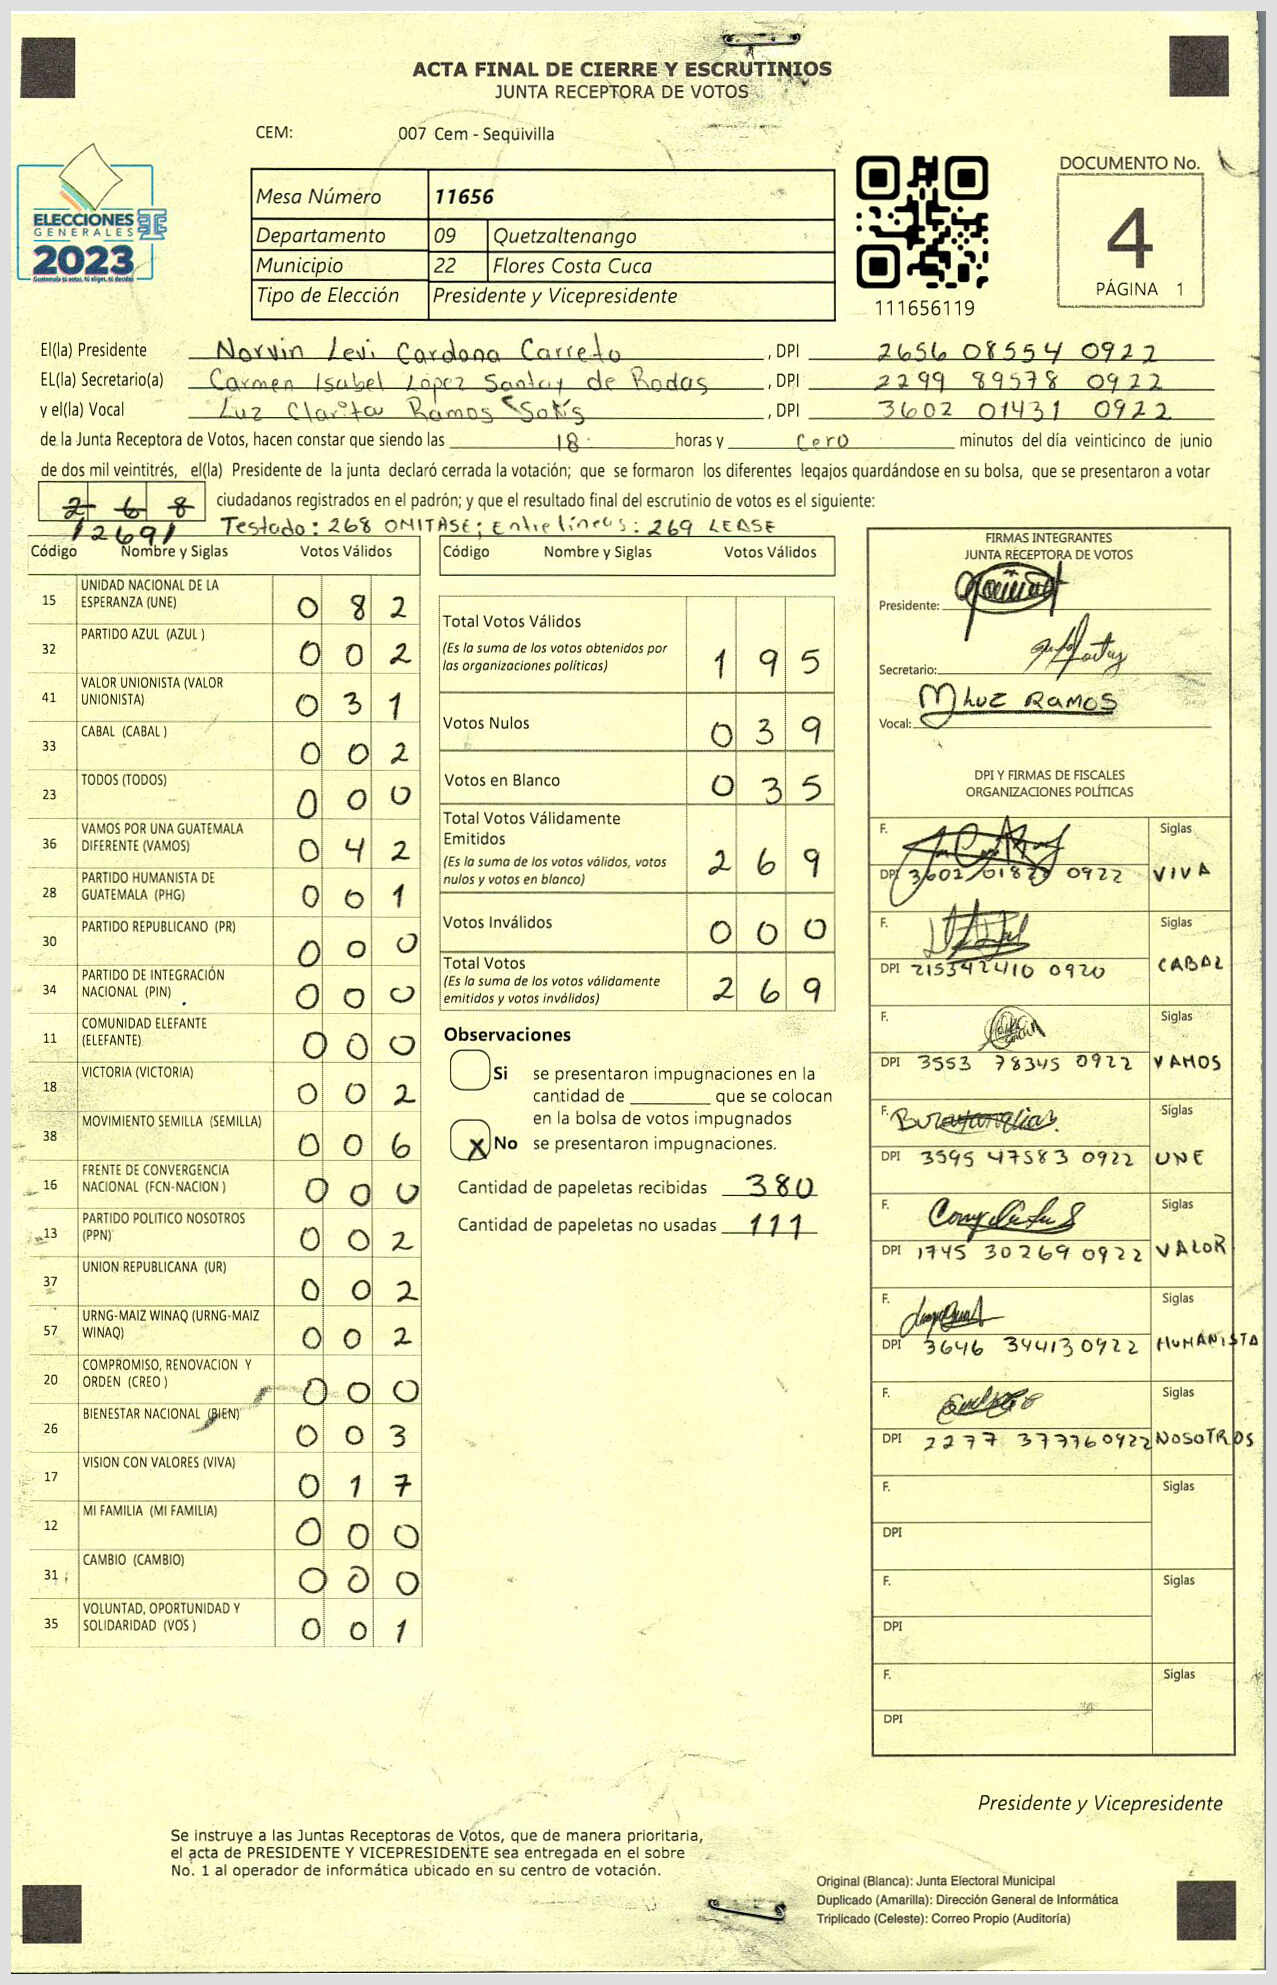 ACTA FINAL DE CIERRE Y ESCRUTINIOS
JUNTA RECEPTORA DE VOTOS
CEM: 007 Cem - Sequivilla
ELECCIONES
GENERALES
2023
Guatemala tú votas, tú eliges, tú decides
Mesa Número 11656
Departamento 09 Quetzaltenango
Municipio 22 Flores Costa Cuca
Tipo de Elección Presidente y Vicepresidente
111656119
DOCUMENTO No.
4
PÁGINA 1
El(la) Presidente Norvin Levi Cardona Carreto, DPI 2656 08554 0922
EL(la) Secretario(a) Carmen Isabel López Santay de Rodas, DPI 2299 89578 0922
y el(la) Vocal Luz Clarita Ramos, DPI 3602 01431 0922
de la Junta Receptora de Votos, hacen constar que siendo las 18 horas y cero minutos del día veinticinco de junio
de dos mil veintitrés, el(la) Presidente de la junta declaró cerrada la votación; que se formaron los diferentes legajos guardándose en su bolsa, que se presentaron a votar
2 6 8 ciudadanos registrados en el padrón; y que el resultado final del escrutinio de votos es el siguiente:
/269/ Testado: 268 OMITASE; Entre líneas: 269 LEASE
Código Nombre y Siglas Votos Válidos
15 UNIDAD NACIONAL DE LA ESPERANZA (UNE) 0 8 2
32 PARTIDO AZUL (AZUL ) 0 0 2
41 VALOR UNIONISTA (VALOR UNIONISTA) 0 3 1
33 CABAL (CABAL ) 0 0 2
23 TODOS (TODOS) 0 0 0
36 VAMOS POR UNA GUATEMALA DIFERENTE (VAMOS) 0 4 2
28 PARTIDO HUMANISTA DE GUATEMALA (PHG) 0 0 1
30 PARTIDO REPUBLICANO (PR) 0 0 0
34 PARTIDO DE INTEGRACIÓN NACIONAL (PIN) 0 0 0
11 COMUNIDAD ELEFANTE (ELEFANTE) 0 0 0
18 VICTORIA (VICTORIA) 0 0 2
38 MOVIMIENTO SEMILLA (SEMILLA) 0 0 6
16 FRENTE DE CONVERGENCIA NACIONAL (FCN-NACION ) 0 0 0
13 PARTIDO POLITICO NOSOTROS (PPN) 0 0 2
37 UNION REPUBLICANA (UR) 0 0 2
57 URNG-MAIZ WINAQ (URNG-MAIZ WINAQ) 0 0 2
20 COMPROMISO, RENOVACION Y ORDEN (CREO ) 0 0 0
26 BIENESTAR NACIONAL (BIEN) 0 0 3
17 VISION CON VALORES (VIVA) 0 1 7
12 MI FAMILIA (MI FAMILIA) 0 0 0
31 CAMBIO (CAMBIO) 0 0 0
35 VOLUNTAD, OPORTUNIDAD Y SOLIDARIDAD (VOS ) 0 0 1
Código Nombre y Siglas Votos Válidos
Total Votos Válidos
(Es la suma de los votos obtenidos por
las organizaciones políticas) 1 9 5
Votos Nulos 0 3 9
Votos en Blanco 0 3 5
Total Votos Válidamente
Emitidos
(Es la suma de los votos válidos, votos
nulos y votos en blanco) 2 6 9
Votos Inválidos 0 0 0
Total Votos
(Es la suma de los votos válidamente
emitidos y votos inválidos) 2 6 9
Observaciones
Si se presentaron impugnaciones en la
cantidad de ________ que se colocan
en la bolsa de votos impugnados
X No se presentaron impugnaciones.
Cantidad de papeletas recibidas 380
Cantidad de papeletas no usadas 111
FIRMAS INTEGRANTES
JUNTA RECEPTORA DE VOTOS
Presidente:
Secretario:
Vocal: Luz Ramos
DPI Y FIRMAS DE FISCALES
ORGANIZACIONES POLÍTICAS
F. Siglas
DPI 3602 0922 VIVA
F. Siglas
DPI 215342410 0920 CABAL
F. Siglas
DPI 3553 78345 0922 VAMOS
F. Siglas
DPI 3595 47583 0922 UNE
F. Siglas
DPI 1745 30269 0922 VALOR
F. Siglas
DPI 3646 34413 0922 HUMANISTA
F. Siglas
DPI 2277 37776 0922 NOSOTROS
F. Siglas
DPI
F. Siglas
DPI
F. Siglas
DPI
Presidente y Vicepresidente
Se instruye a las Juntas Receptoras de Votos, que de manera prioritaria,
el acta de PRESIDENTE Y VICEPRESIDENTE sea entregada en el sobre
No. 1 al operador de informática ubicado en su centro de votación.
Original (Blanca): Junta Electoral Municipal
Duplicado (Amarilla): Dirección General de Informática
Triplicado (Celeste): Correo Propio (Auditoría)